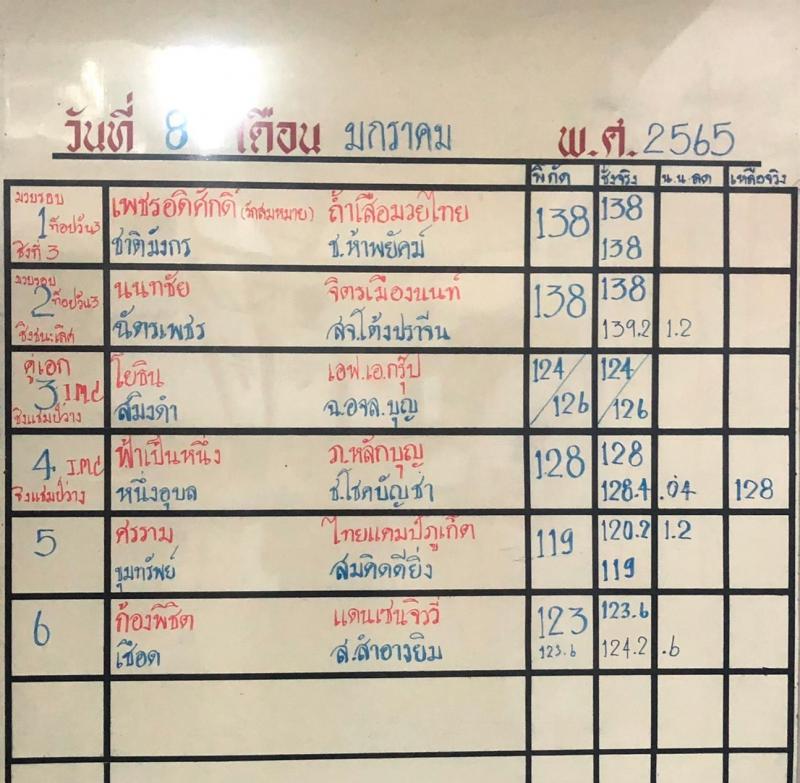 วันที่ 8 เดือน มกราคม พ.ศ. 2565
พิกัด ชั่งจริง น.น.ลด เหลือจริง
มวยรอบ
1 ท็อปวัน3
ชิงที่ 3
เพชรอดิศักดิ์ (รักสมหมาย) ถ้ำเสือมวยไทย 138 138
ชาติมังกร ช.ห้าพยัคฆ์ 138
มวยรอบ
2 ท็อปวัน3
ชิงชนะเลิศ
นนทชัย จิตรเมืองนนท์ 138 138
ฉัตรเพชร สจ.โต้งปราจีน 139.2 1.2
คู่เอก
3 I.M.C
ชิงแชมป์ว่าง
โยธิน เอฟ.เอ.กรุ๊ป 124/126 124/126
สมิงดำ ฉ.อจล.บุญ
4 I.M.C
ชิงแชมป์ว่าง
ฟ้าเป็นหนึ่ง ภ.หลักบุญ 128 128
หนึ่งอุบล ช.โชคบัญชา 128.4 .04 128
5 ศรราม ไทยแคมป์ภูเก็ต 119 120.2 1.2
ขุมทรัพย์ สมคิดดียิ่ง 119
6 ก้องพิชิต แดนเซนจิวรี่ 123 123.6
เชือด ส.สำอางยิม 123.6 124.2 .6